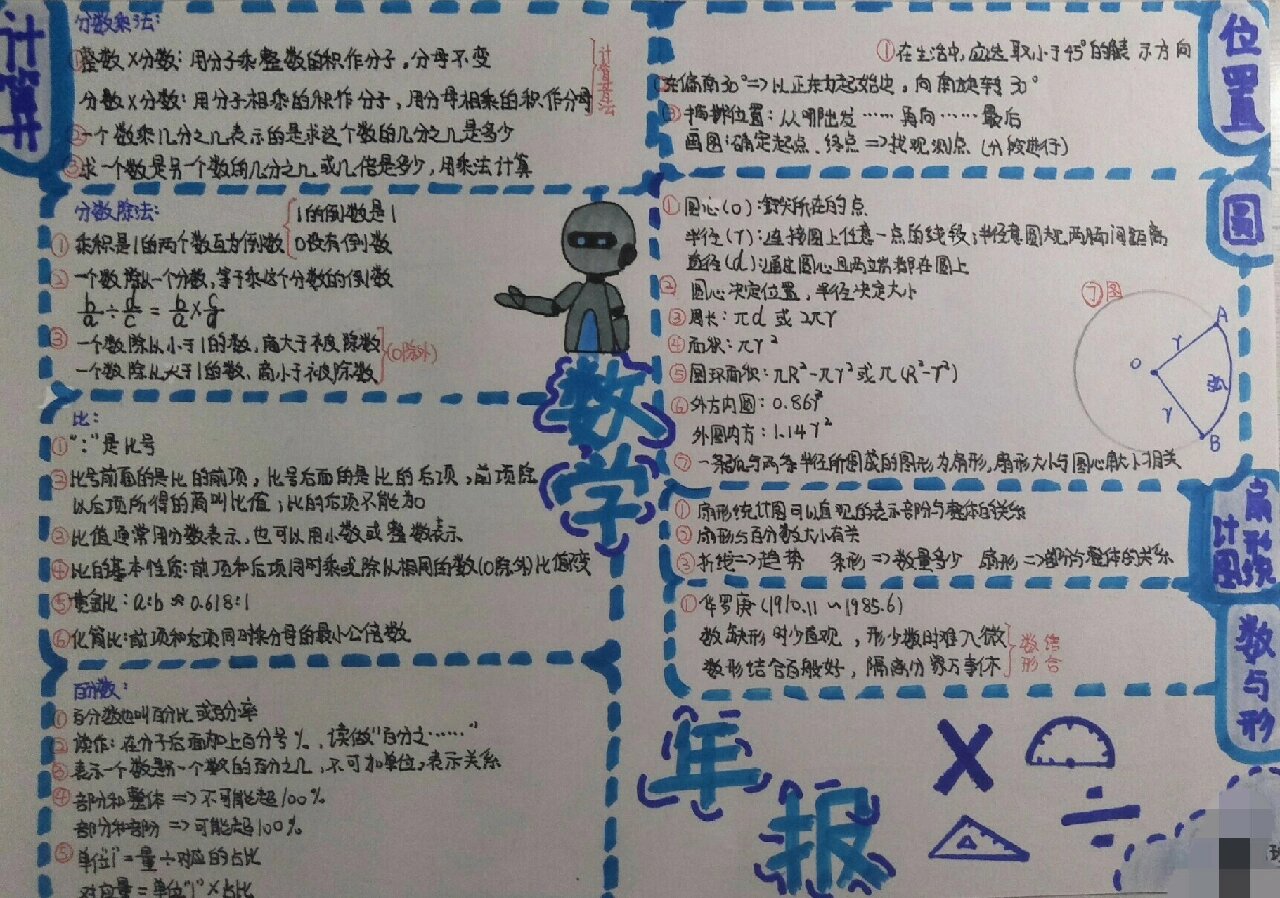 计算
分数乘法:
①整数×分数: 用分子乘整数的积作分子,分母不变
分数×分数: 用分子相乘的积作分子, 用分母相乘的积作分母
计算方法
②一个数乘几分之几表示的是求这个数的几分之几是多少
③求一个数是另一个数的几分之几或几倍是多少, 用乘法计算
分数除法:
1的倒数是1
①乘积是1的两个数互为倒数
0没有倒数
②一个数除以一个分数, 等于乘这个分数的倒数
b/a÷d/c=b/a×c/d
③一个数除以小于1的数, 商大于被除数
一个数除以大于1的数、商小于被除数
(0除外)
比:
①“:”是比号
②比号前面的是比的前项, 比号后面的是比的后项, 前项除
以后项所得的商叫比值; 比的后项不能为0
③比值通常用分数表示, 也可以用小数或整数表示
④比的基本性质: 前项和后项同时乘或除以相同的数(0除外)比值不变
⑤黄金比: a:b≈0.618:1
⑥化简比: 前项和后项同时乘分母的最小公倍数
百分数:
①百分数也叫百分比或百分率
②读作: 在分子后面加上百分号%、读做“百分之……”
③表示一个数是另一个数的百分之几, 不可加单位, 表示关系
④部分和整体=>不可能超100%
部分和部分=>可能超100%
⑤单位“1”=量÷对应的占比
对应量=单位“1”×占比
数学
年报
位置
①在生活中, 应选取小于45°的 示方向
东偏南30°=>以正东方起始边, 向南旋转30°
②描述位置: 从哪出发……再向……最后
画图: 确定起点、终点=>找观测点(分段进行)
圆
①圆心(O): 针尖所在的点
半径(r): 连接圆上任意一点的线段; 半径是圆规两脚间距离
直径(d): 通过圆心且两端都在圆上
②圆心决定位置, 半径决定大小
③周长: πd 或 2πr
④面积: πr²
⑤圆环面积: πR²-πr²或π(R²-r²)
⑥外方内圆: 0.86r²
外圆内方: 1.14r²
⑦一条弧与两条半径所围成的图形为扇形, 扇形大小与圆心角大小相关
⑦图
A
r
O
弧
r
B
扇形统计图
①扇形统计图可以直观的表示部分与整体的关系
②扇形与百分数大小有关
③折线=>趋势 条形=>数量多少 扇形=>部分与整体的关系
数与形
①华罗庚(1910.11~1985.6)
数缺形时少直观, 形少数时难入微
数形结合百般好, 隔离分家万事休
数形结合